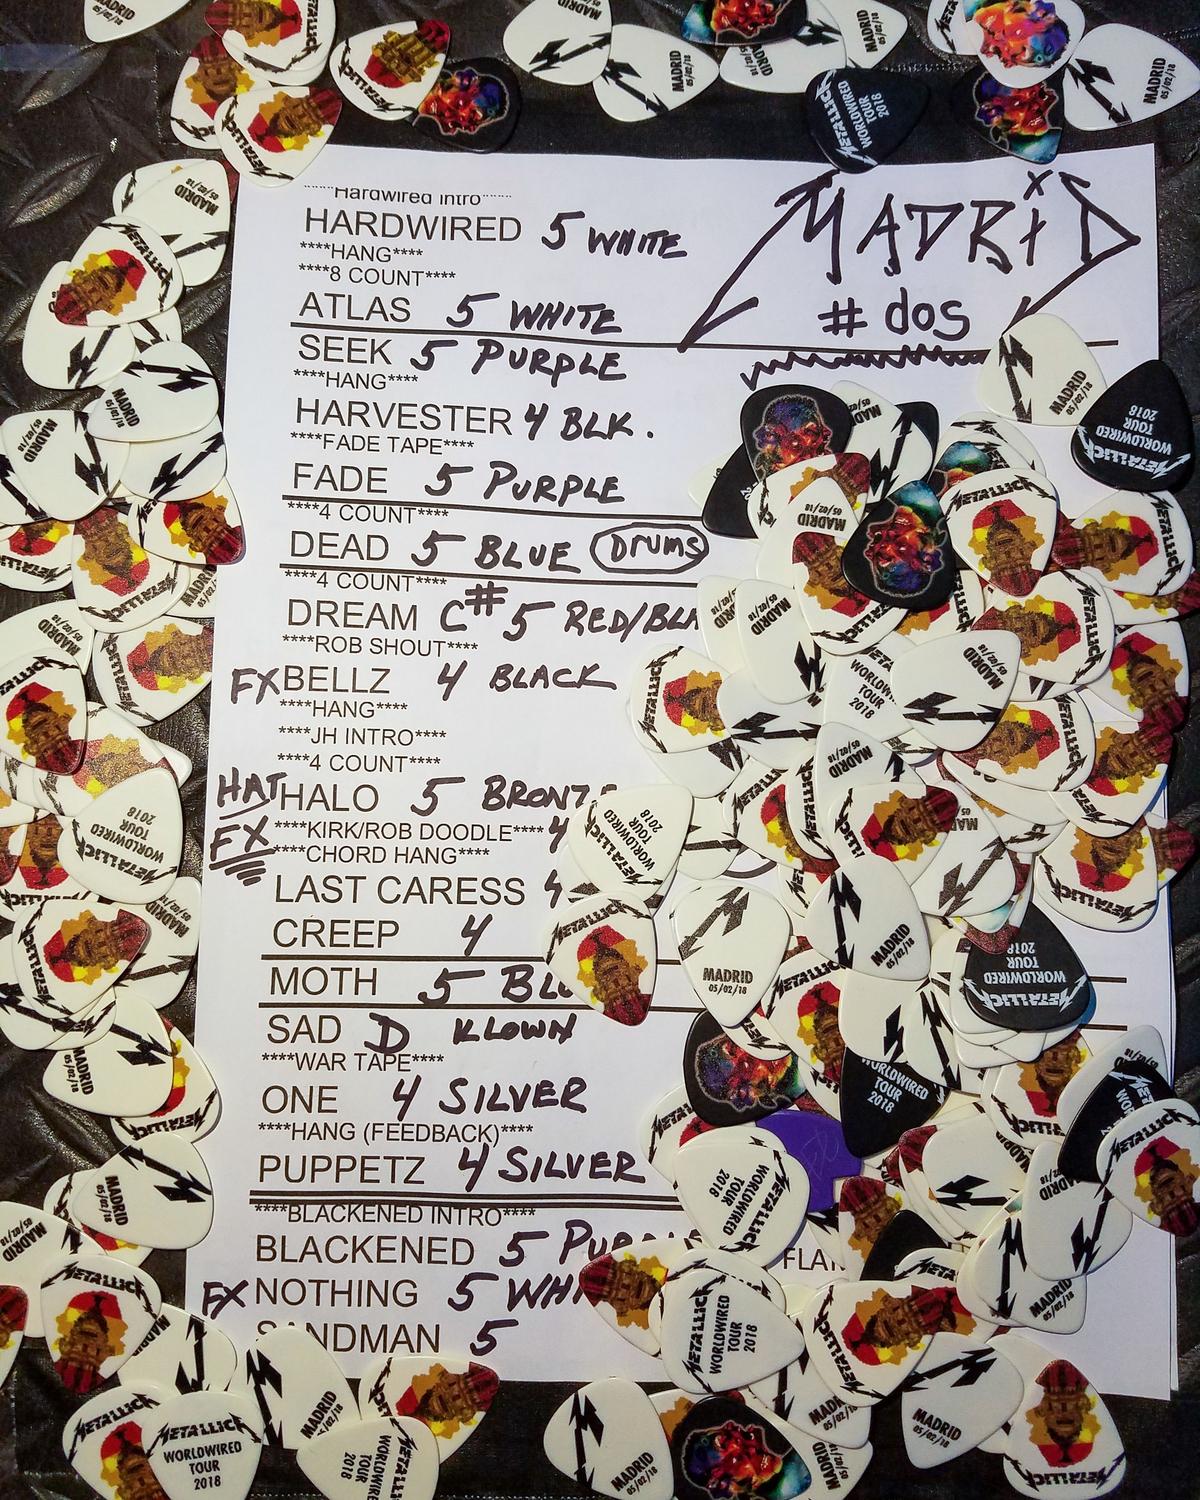 ****Hardwired Intro****
HARDWIRED 5 WHITE
MADRiD
****HANG****
****8 COUNT****
ATLAS 5 WHITE
# dos
SEEK 5 PURPLE
****HANG****
HARVESTER 4 BLK.
****FADE TAPE****
FADE 5 PURPLE
****4 COUNT****
DEAD 5 BLUE Drums
****4 COUNT****
DREAM C# 5 RED/BLA
****ROB SHOUT****
FX BELLZ 4 BLACK
****HANG****
****JH INTRO****
****4 COUNT****
HAT HALO 5 BRONZE
FX ****KIRK/ROB DOODLE**** 4
****CHORD HANG****
LAST CARESS 4
CREEP 4
MOTH 5 BLU
SAD D KLOWN
****WAR TAPE****
ONE 4 SILVER
****HANG (FEEDBACK)****
PUPPETZ 4 SILVER
****BLACKENED INTRO****
BLACKENED 5 PURPLE
FX NOTHING 5 WHI
SANDMAN 5
METALLICA
WORLDWIRED
TOUR
2018
MADRID
05/02/18